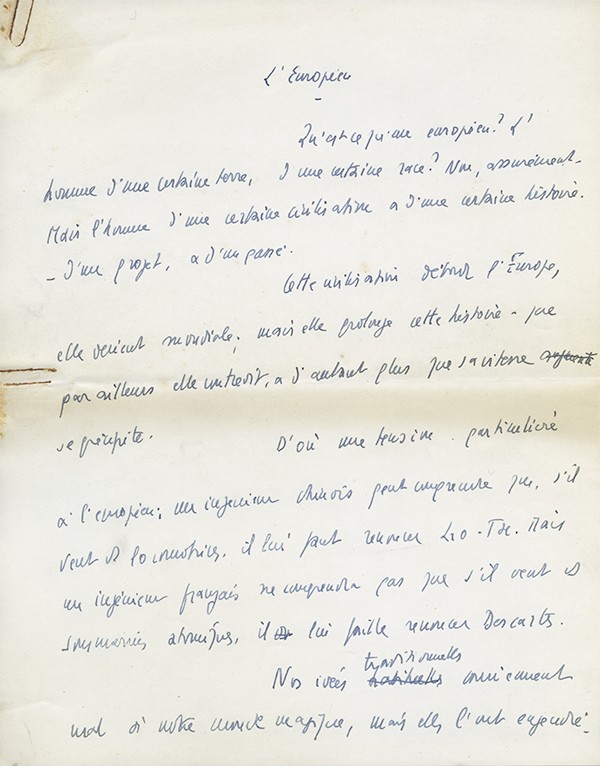 L'Européen
Qu'est-ce qu'un européen? L'
homme d'une certaine terre, d'une certaine race? Non, assurément.
Mais l'homme d'une certaine civilisation & d'une certaine histoire.
– d'un projet, & d'un passé.
Cette civilisation déborde l'Europe,
elle devient mondiale; mais elle prolonge cette histoire – que
par ailleurs elle contredit, & d'autant plus que sa vitesse augmente
se précipite.
D'où une tension particulière
à l'européen; un ingénieur chinois peut comprendre que, s'il
veut des locomotives, il lui faut renoncer Lao-Tse. Mais
un ingénieur français ne comprendra pas que s'il veut des
sous-marins atomiques, il lui faille renoncer Descartes.
traditionnelles
Nos idées habituelles conviennent
mal à notre monde magique, mais elles l'ont engendré.